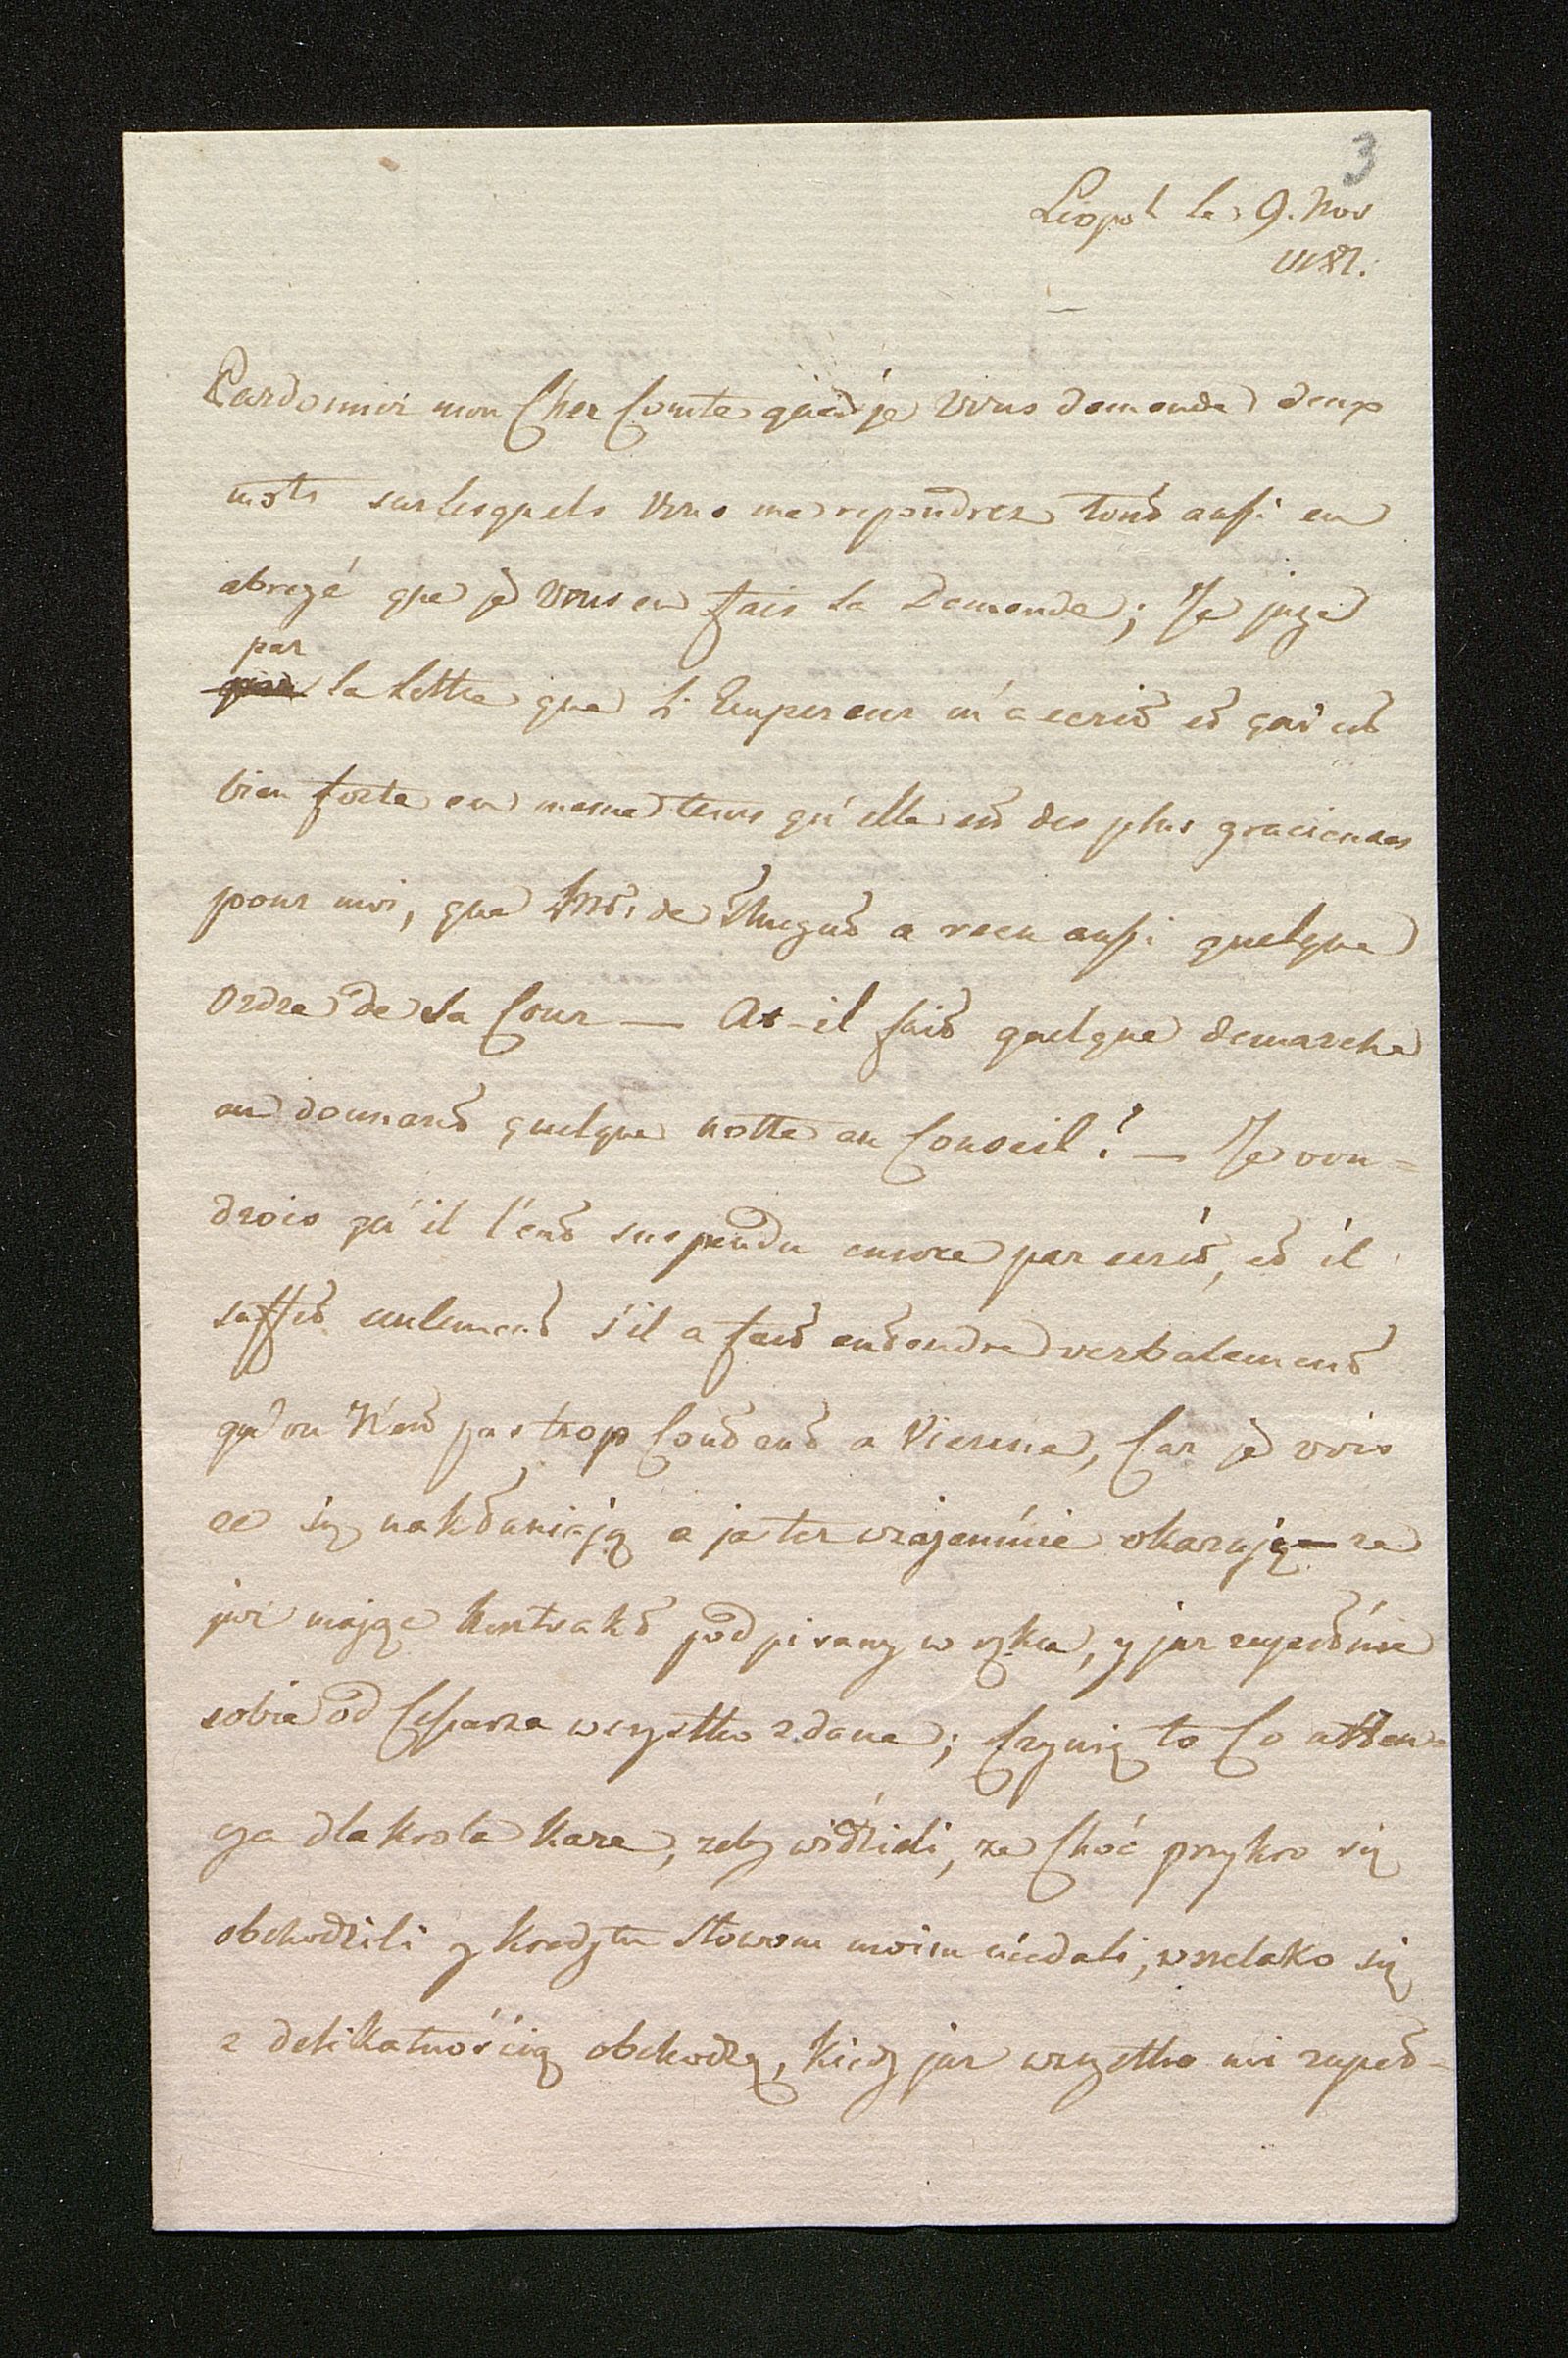 3
Léopol le 9. Nov
Pardonnéz mon Cher Comte que je Vous demande deux
mots sur lesquels Vous me repondrez tout aussi en
abregé que je Vous en fais la Demande; Je juge
par
la Lettre que L'Empereur m'a ecrit et qui est
bien forte en meme tems qu'elle est des plus gracieuses
pour moi, que Mr. de Thugut a recu aussi quelque
Ordre de la Cour — At-il fait quelque demarche
en donnant quelque notte au Conseil? — Je vou=
drois qu'il l'eut suspendu encore par ecrit, et il
suffit seulement s'il a fait entendre verbalement
qu'on n'est pas trop Content a Vienne, Car je vois
ze się nakłaniają a ja tez wzajemnie okazuję ze
juz mając kontrakt podpisany w ręku, y juz zupełnie
sobie od Cesarza wszystko zdane; Czynię to Co atten=
cya dla krola kaze, zeby widzieli, ze Choć przykro się
obchodzili y kredytu słowom moim niedali, wszelako się
z delikatnością obchodzę, kiedy juz wszystko mi zupeł=